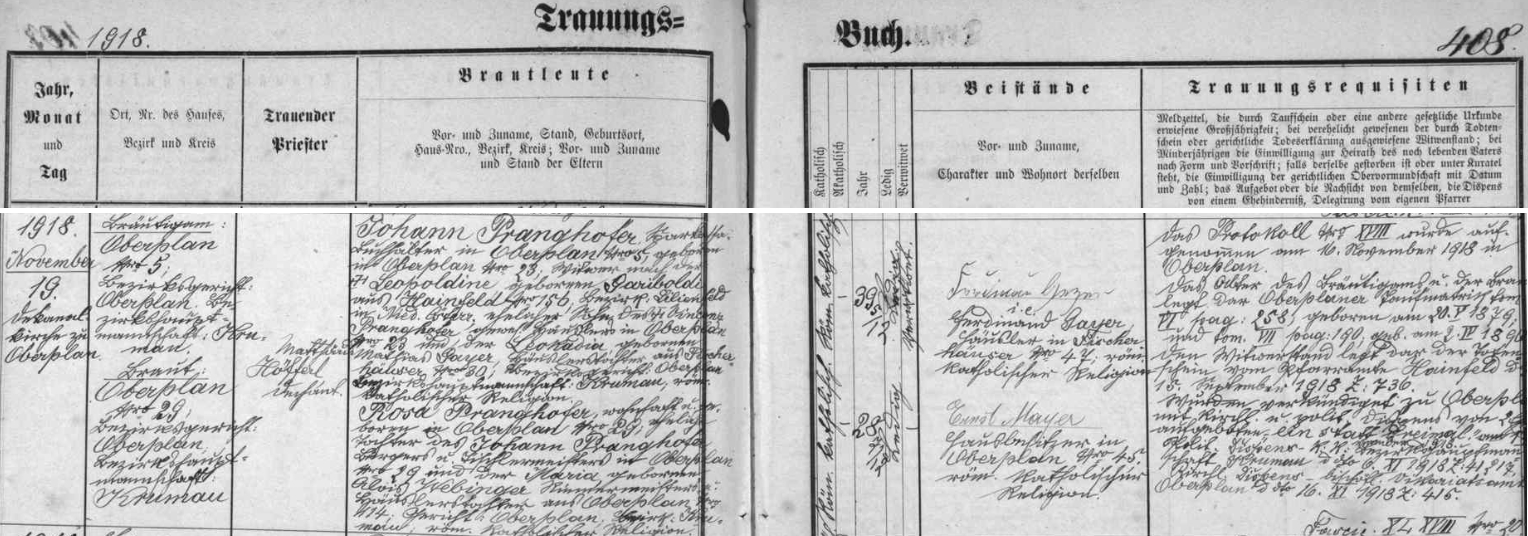 1918.
Trauungs=
Buch.
408.
Jahr,
Monat
und
Tag
Ort, Nr. des Hauses,
Bezirk und Kreis
Trauender
Priester
Brautleute
Vor- und Zuname, Stand, Geburtsort,
Haus-Nro., Bezirk, Kreis; Vor- und Zuname
und Stand der Eltern
Katholisch
Akatholisch
Jahr
Ledig
Verwitwet
Beistände
Vor- und Zuname,
Charakter und Wohnort derselben
Trauungsrequisiten
Meldzettel, die durch Taufschein oder eine andere gesetzliche Urkunde
erwiesene Großjährigkeit; bei verehelicht gewesenen der durch Todten-
schein oder gerichtliche Todeserklärung ausgewiesene Witwenstand; bei
Minderjährigen die Einwilligung zur Heirath des noch lebenden Vaters
nach Form und Vorschrift; falls derselbe gestorben ist oder unter Kuratel
steht, die Einwilligung der gerichtlichen Obervormundschaft mit Datum
und Zahl; das Aufgebot oder die Nachsicht von demselben, die Dispens
von einem Ehehinderniß, Delegirung vom eigenen Pfarrer
1918.
November
19.
Dekanal
kirche zu
Oberplan.
Bräutigam:
Oberplan
Nro 5;
Bezirksgericht:
Oberplan. Be
zirkshaupt-
mannschaft: Kru-
mau.
Braut:
Oberplan
Nro 29;
Bezirksgericht:
Oberplan
Bezirkshaupt-
mannschaft:
Krumau
Matthäus
Hötzerl
Dechant.
Johann Pranghofer, Sparkasse-
buchhalter in Oberplan Nro 5, geboren
in Oberplan Nro 23, Witwer nach der
Leopoldine geborenen Gariboldi
aus Hainfeld Nro 156, Bezirk: Lilienfeld
in Nied. Österr., ehelicher Sohn des
Pranghofer, Häuslers in Oberplan
Nro 23 und der Leokadia geborenen
Mathias Gayer, Häuslerstochter aus Pircher-
häuser Nro 30, Bezirksgericht: Oberplan
Bezirkshauptmannschaft: Krumau, röm.
katholischer Religion.
Rosa Pranghofer, wohnhaft u. ge-
boren in Oberplan Nro 29, eheliche
Tochter des Johann Pranghofer
Bürgers u. Tischlermeisters in Oberplan
Nro 29 und der Maria, geborenen
Alois Nebinger
Häuslerstochter aus Oberplan Nro
114, Gericht: Oberplan, Bezirk: Kru-
mau, röm. katholischer Religion.
Röm. katholisch
39
ledig
28
Ferdinand Gayer
i. e.
Ferdinand Gayer,
Häusler in Pircher-
häuser Nro 47, röm.
katholischer Religion
Ernst Mayer
Hausbesitzer in
Oberplan, Nro 45
röm. katholischer
Religion.
Das Protokoll Nro XVIII wurde auf-
genommen am 10. November 1918 in
Oberplan.
Das Alter des Bräutigams u. der Braut
legt dar Oberplaner Taufmatrik tom
VI pag: 258, geboren am 20. V 1879,
und tom. VII pag: 190, geb. am 2. IV 1890
Den Witwerstand legt dar der Toten-
schein vom Pfarramte Hainfeld d
15. September 1918 Z: 736.
Wurden verkündiget zu Oberpla
mit kirchl. u. polit. Dispens von
aufgeboten ein statt dreimal. am
Polit. Dispens k. k. Bezirkshauptmann
schaft Krumau d dto 6. XI 1918 Z:
Kirchl. Dispens bischöfl. Vikariatsamt
Oberplan d dto 16. XI 1918 Z: 415.
Fascic. XL XVIII Nro 20